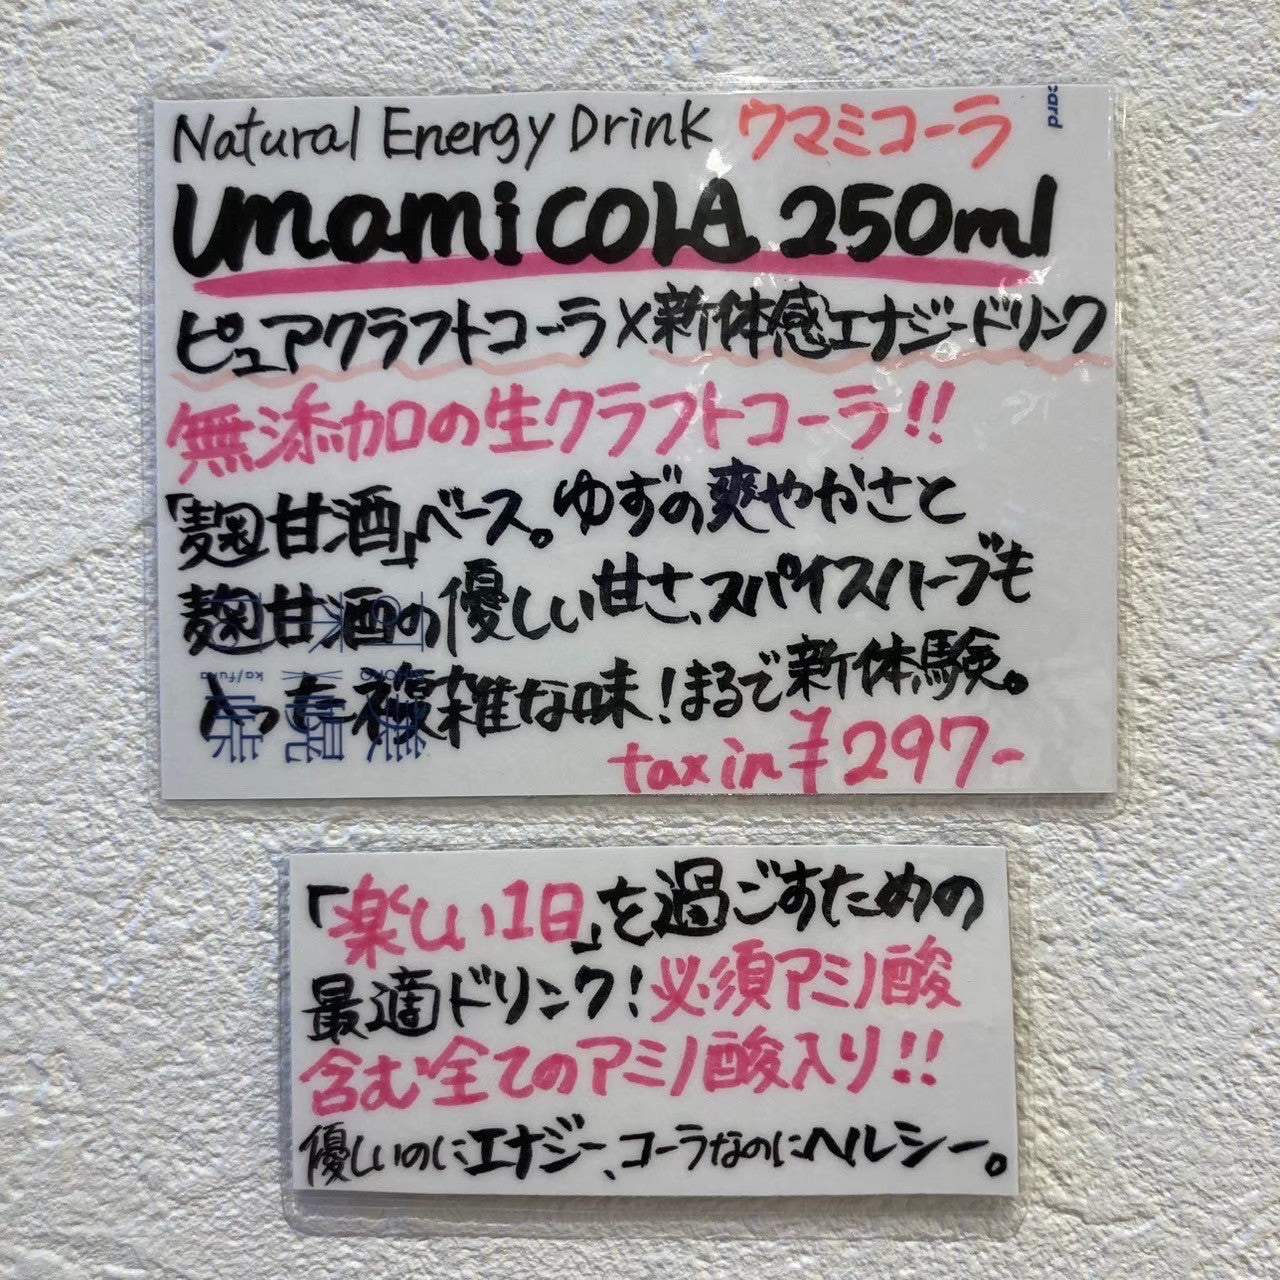 Natural Energy Drink ウマミコーラ
UmamiCOLA 250ml
ピュアクラフトコーラ×新体感エナジードリンク
無添加の生クラフトコーラ!!
「麹甘酒」ベース。ゆずの爽やかさと
麹甘酒の優しい甘さ、スパイスハーブも
入った複雑な味!まるで新体験。
tax in ¥297-
card
ka/fuka
「楽しい1日」を過ごすための
最適ドリンク!必須アミノ酸
含む全てのアミノ酸入り!!
優しいのにエナジー、コーラなのにヘルシー。